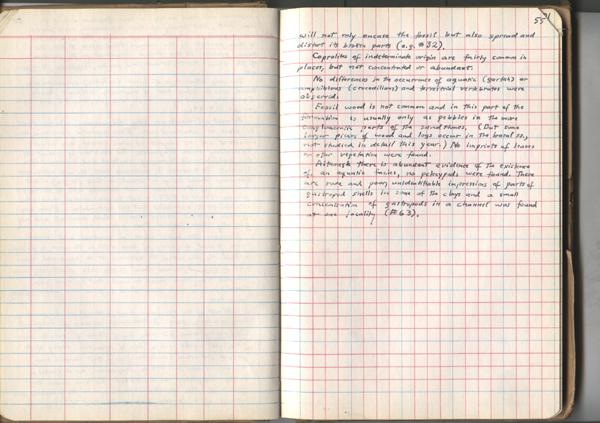 55
will not only encase the fossil but also spread and
distort its broken parts (e.g. #32).
Coprolites of indeterminate origin are fairly common in
places, but not concentrated or abundant.
No differences in the occurrence of aquatic (garfish) or
amphibious (crocodilians) and terrestrial vertebrates were
observed.
Fossil wood is not common and in this part of the
formation is usually only as pebbles in the more
conglomeratic parts of the sandstones. (But some
larger pieces of wood and logs occur in the basal ss,
not studied in detail this year.) No imprints of leaves
or other vegetation were found.
Although there is abundant evidence of the existence
of an aquatic facies, no pelecypods were found. There
are rare and poor, unidentifiable impressions of parts of
gastropod shells in some of the clays and a small
concentration of gastropods in a channel was found
at one locality (#63).